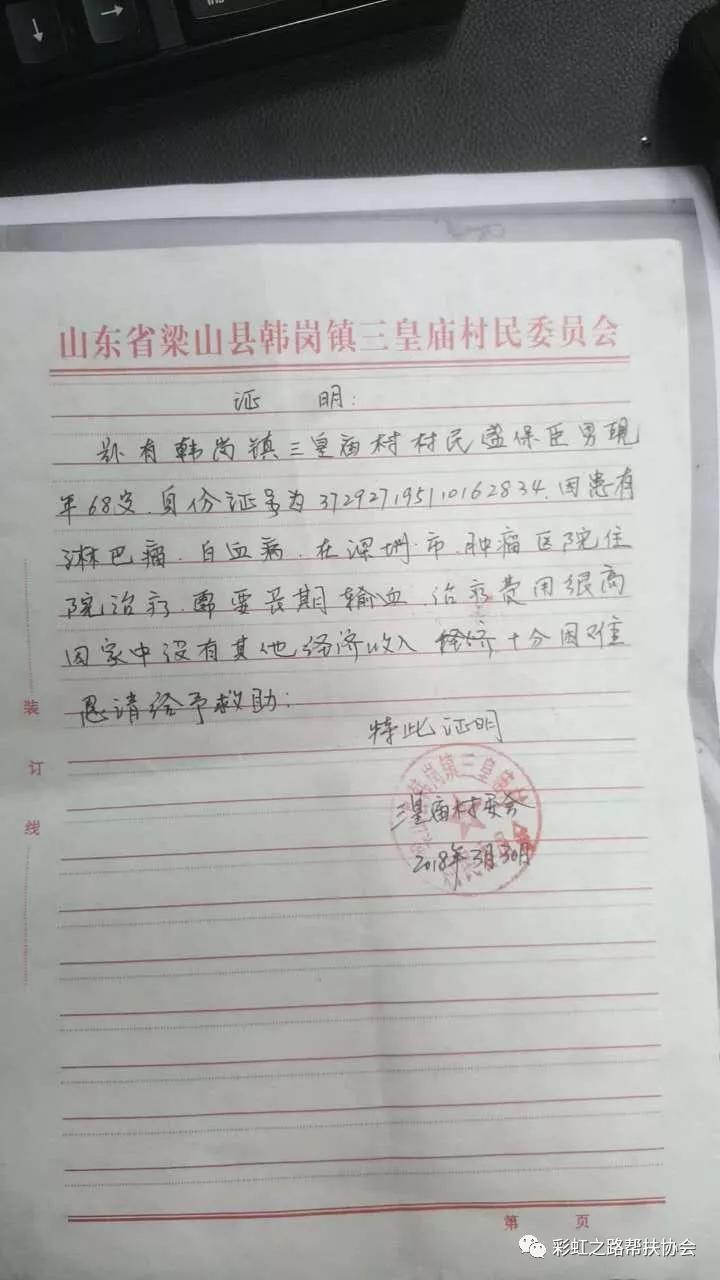 山东省梁山县韩岗镇三皇庙村民委员会
证 明:
兹有韩岗镇三皇庙村村民盛保臣男现
年68岁.身份证号为372927195110162834.因患有
淋巴瘤.白血病.在深圳市.肿瘤医院住
院治疗.需要长期输血.治疗费用很高
因家中没有其他经济收入 经济十分困难
恳请给予救助:
特此证明
三皇庙村委会
2018年3月30月
装
订
线
第 页
彩虹之路帮扶协会